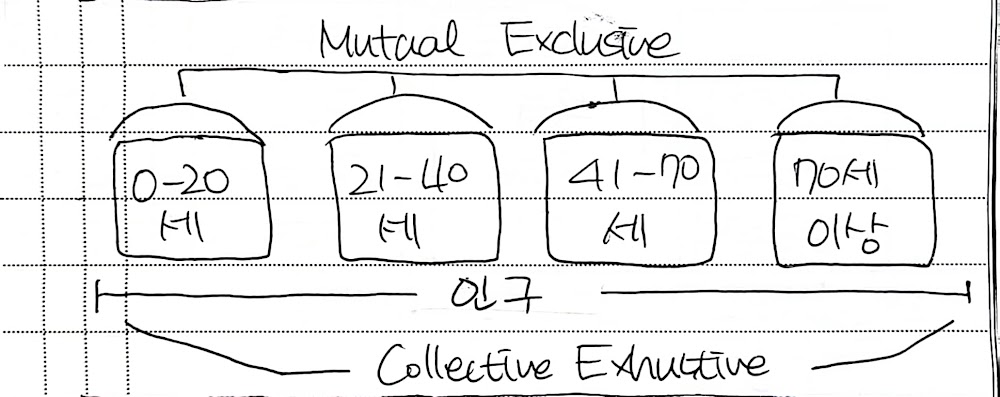 Mutual Exclusive
0-20 세
21-40 세
41-70 세
70세 이상
인구
Collective Exhuctive